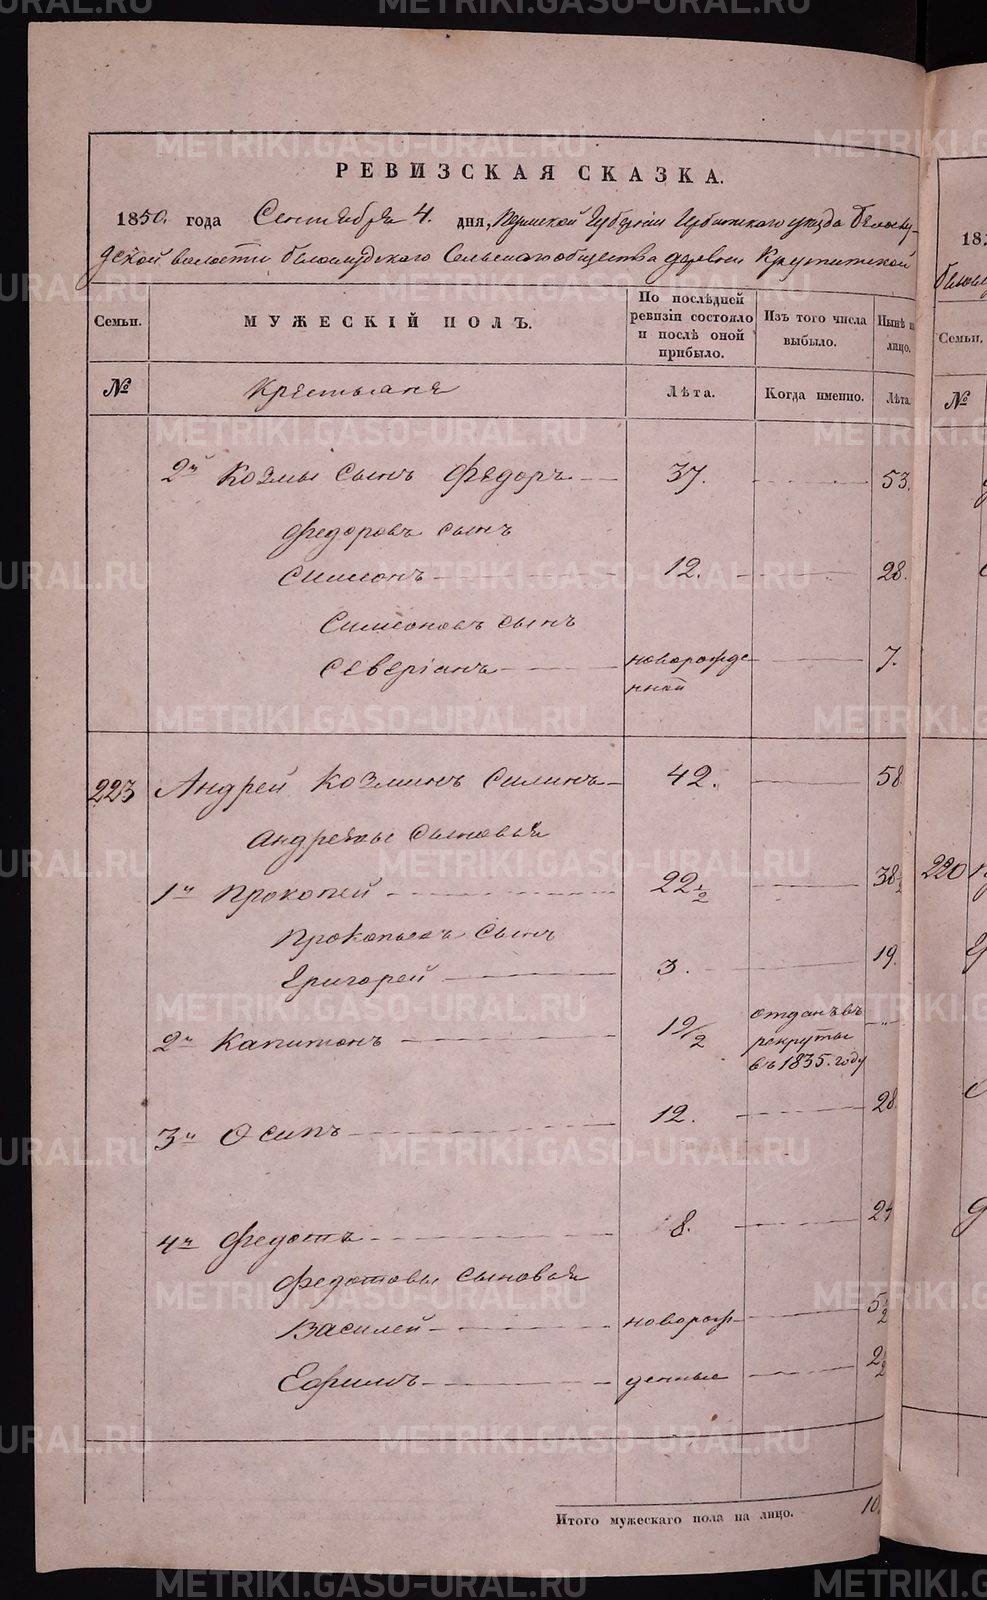 РЕВИЗСКАЯ СКАЗКА.
1850. года Сентября 4. дня, Пермской Губернии Ирбитского уезда Белослу-
дской волости Белослудского Сельскаго общества деревни
Семьи.
МУЖЕСКІЙ ПОЛЪ.
По послѣдней ревизіи состояло и послѣ оной прибыло.
Изъ того числа выбыло.
Нынѣ
лицо.
№
Крестьяне
Лѣта.
Когда именно.
Лѣта.
2й Козмы сынъ Федоръ 37. 53.
Федоровъ сынъ
Симионъ 12. 28.
Симионовъ сынъ
Северіанъ новорожде 7.
нной
223 Андрей Козминъ Силинъ 42. 58
Андреевы сыновья
1й Прокопей 22½ 38½
Прокопьевъ сынъ
Григорей 3. 19.
2й Капитонъ 19/2 отданъ въ -"-
рекруты
въ 1835. году
3й Осипъ 12. 28.
4й Федотъ 8. 24
Федотовы сыновья
Василей новорож- 5½
Ефимъ денные 2½
Итого мужескаго пола на лицо. 10.
18
Семьи.
№
220
METRIKI.GASO-URAL.RU